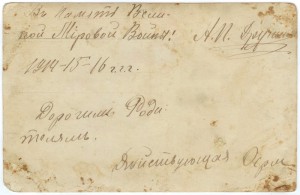 Въ Память Вели-
кой Міровой Войны!
А. П.
1914-15-16 г.г.
Дорогимъ Роди
телямъ.
Действующая